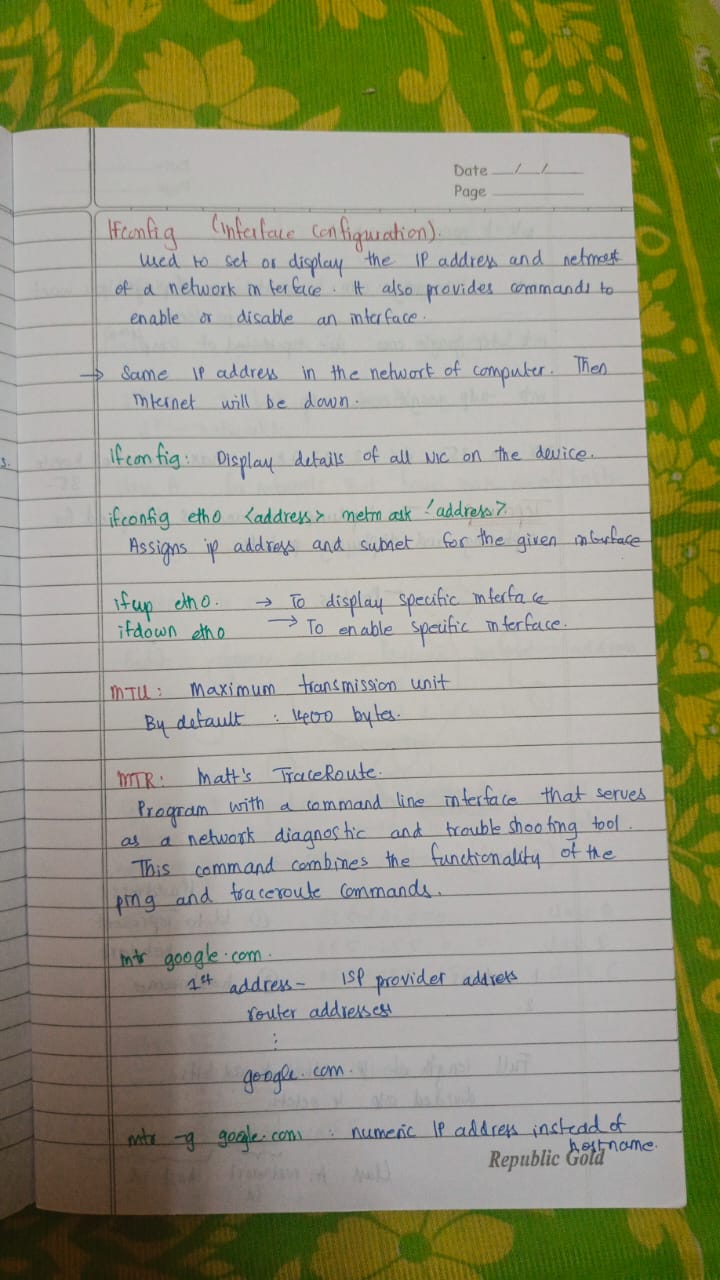 Date __/__/__
Page
Ifconfig (Interface Configuration).
Used to set or display the IP address and netmast
of a network interface. It also provides commands to
enable or disable an interface.
→ Same IP address in the network of computer. Then
Internet will be down.
s.
Ifconfig: Display details of all NIC on the device.
ifconfig eth0 <address> netmask <address>
Assigns ip address and subnet for the given interface
ifup eth0. → To display specific interface
ifdown eth0 → To enable specific interface.
MTU: Maximum transmission unit
By default : 1400 bytes.
MTR: Matt's TraceRoute.
Program with a command line interface that serves
as a network diagnostic and trouble shooting tool.
This command combines the functionality of the
ping and traceroute commands.
mtr google.com.
1st address - ISP provider address
router addresses
⋮
google.com.
mtr -g google.com : numeric IP address instead of
hostname.
Republic Gold